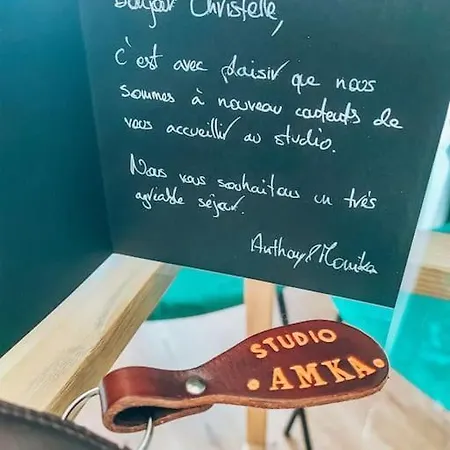 Bonjour Christelle,
C'est avec plaisir que nous
sommes à nouveau contents de
vous accueillir au studio.
Nous vous souhaitons un très
agréable séjour.
Anthony & Monika
STUDIO
AMKA